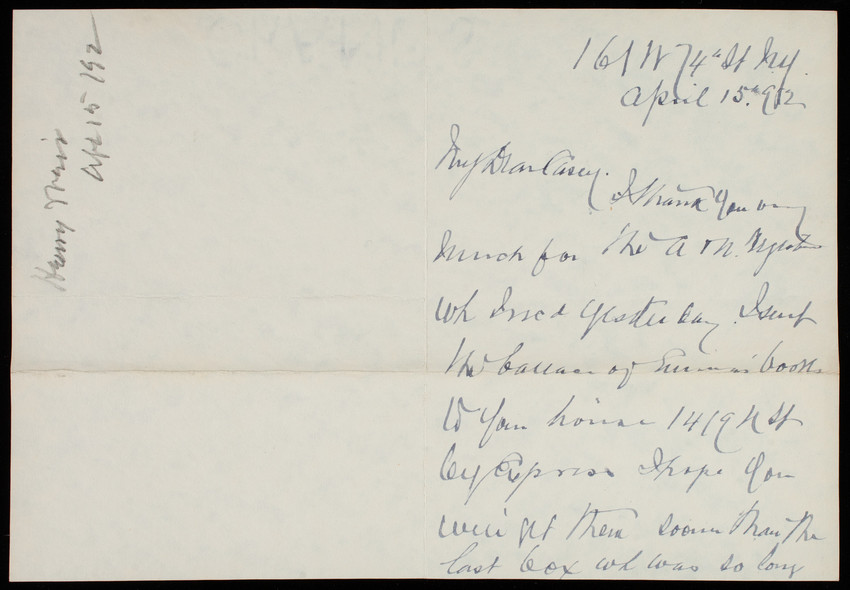 Henry
Apl 15 192
161 W 74th St N.Y.
April 15th 92
My Dear Casey.
I thank you very
much for the A & N. Register
wh I rec'd yesterday. I sent
the ballance of Emma's books
to your house 1419 K St
by Express I hope you
will get them sooner than the
last box wh was so long